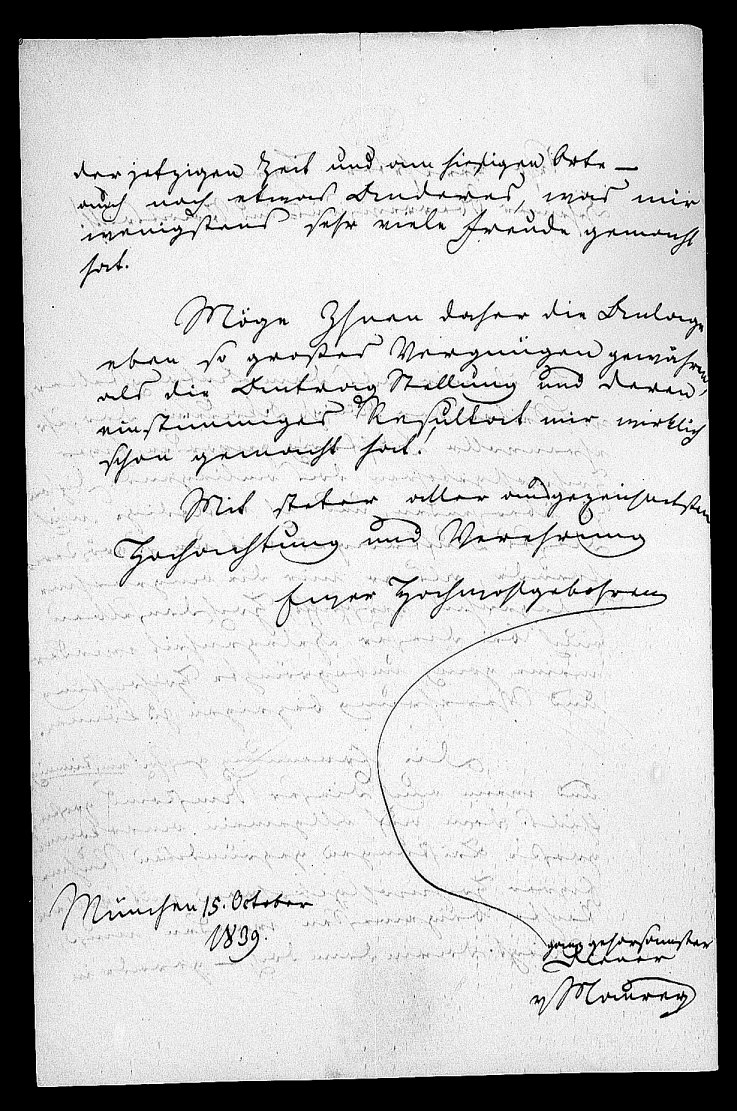 der jetzigen Zeit und am hiesigen Orte –
auch noch etwas Anderes, was mir
wenigstens sehr viele Freude gemacht
hat.
Möge Ihnen daher die Anlage
eben so großes Vergnügen gewähren,
als die Antrag Stellung und deren
einstimmiges Resultat mir wirklich
schon gemacht hat.
Mit steter aller ausgezeichnetsten
Hochachtung und Verehrung
Euer Hochwohlgebohren
München 15. October
1839.
ganz gehorsamster
Diener
v Maurer